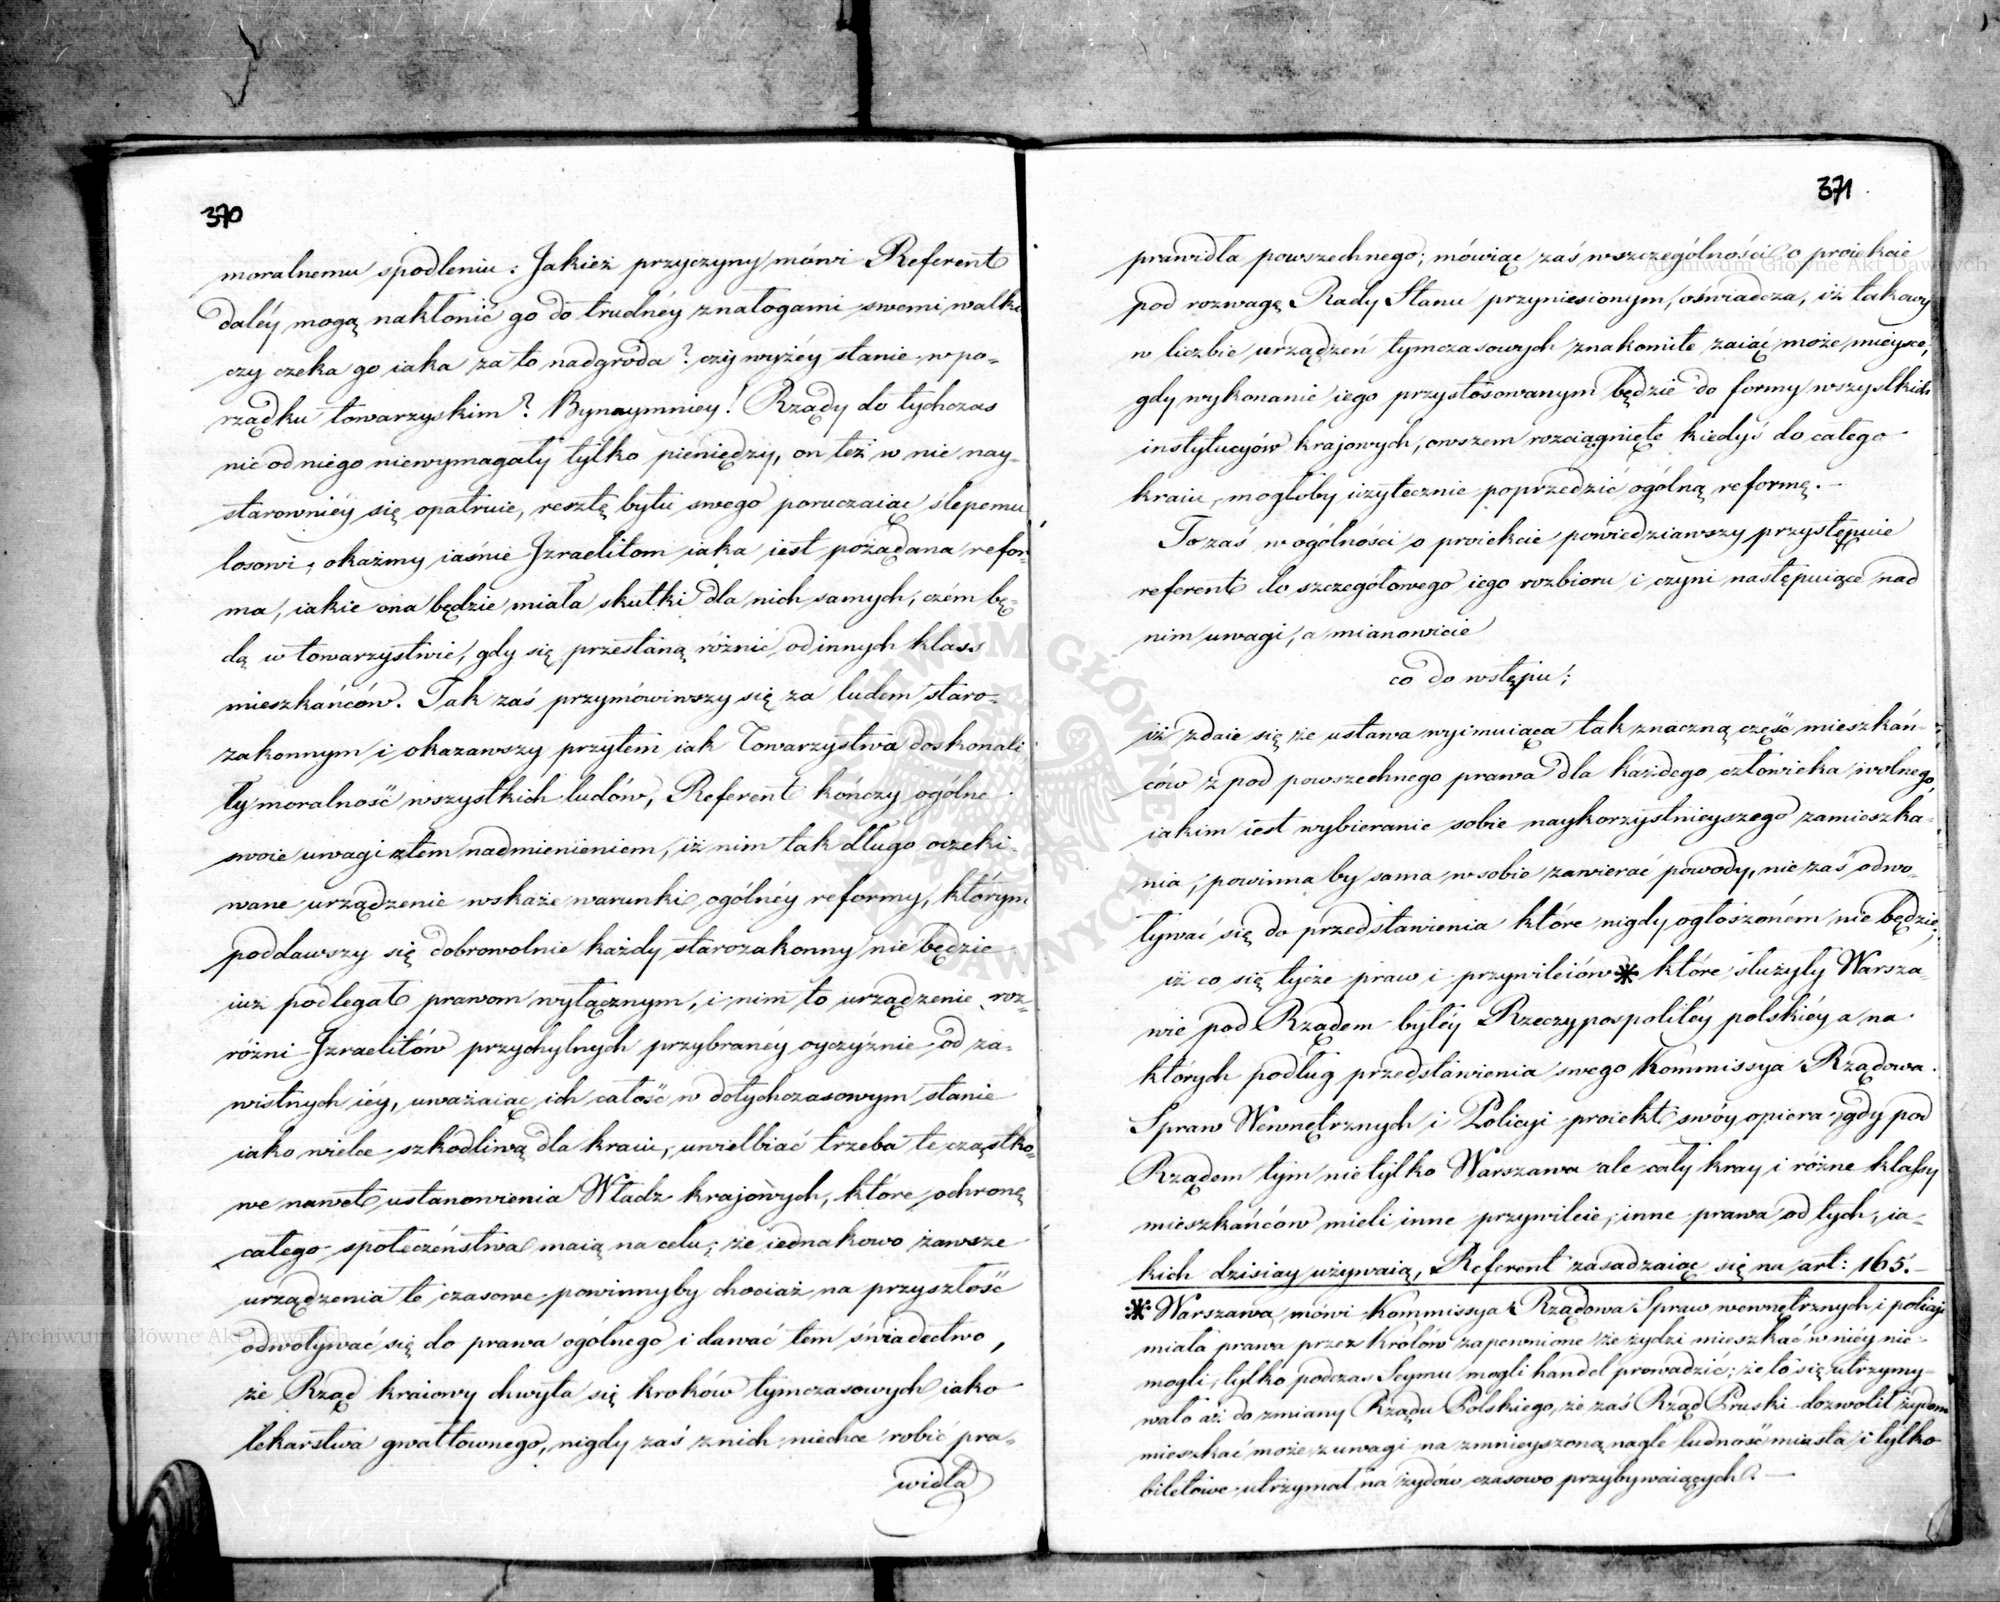 370
moralnemu spodleniu: Jakież przyczyny mówi Referent
daléy mogą nakłonić go do trudnéy z nałogami swemi walki
czy czeka go iaka za to nadgroda? czy wyżéy stanie w po-
rządku towarzyskim? Bynaymniey! Rządy do tychczas
nic od niego niewymagały tylko pieniędzy, on też w nie nay-
starowniéy się opatruie, resztę bytu swego poruczaiąc ślepemu
losowi, okażmy iaśnie Izraelitom iaka iest pożądana refor-
ma, iakie ona będzie miała skutki dla nich samych, czém bę-
dą w towarzystwie, gdy się przestaną różnić od innych klass
mieszkańców. Tak zaś przymówiwszy się za ludem staro-
zakonnym i okazawszy przytém iak Towarzystwa doskonali
ły moralność wszystkich ludów, Referent kończy ogólne
swoie uwagi z tem nadmienieniem, iż nim tak długo oczeki-
wane urządzenie wskaże warunki ogólnéy reformy, którym
poddawszy się dobrowolnie każdy starozakonny nie będzie
iuż podlegał prawom wyłącznym, i nim to urządzenie roz-
różni Izraelitów przychylnych przybranéy oyczyźnie od za-
wistnych iéy, uważaiąc ich całość w dotychczasowym stanie
iako wielce szkodliwą dla kraiu, uwielbiać trzeba te cząstko-
we nawet ustanowienia Władz krajowych, które ochronę
całego społeczeństwa maią na celu; że iednakowo zawsze
urządzenia te czasowe powinnyby chociaż na przyszłość
odwoływać się do prawa ogólnego i dawać tem świadectwo,
że Rząd kraiowy chwyta się kroków tymczasowych iako
lekarstwa gwałtownego, nigdy zaś z nich niechce robić pra-
widła
371
prawidła powszechnego; mówiąc zaś wszczególności o proiekcie
pod rozwagę Rady Stanu przyniesionym, oświadcza, iż takowy
w liczbie urządzeń tymczasowych znakomite zaiąć może mieysce,
gdy wykonanie iego przystosowanym będzie do formy wszystkich
instytucyów krajowych, owszem rozciągnięte kiedyś do całego
kraiu, mogłoby użytecznie poprzedzić ogólną reformę.-
To zaś w ogólności o proiekcie powiedziawszy przystępuie
referent do szczegółowego iego rozbioru i czyni następuiące nad
nim uwagi, a mianowicie
co do wstępu;
iż zdaie się że ustawa wyimuiąca tak znaczną część mieszkań-
ców z pod powszechnego prawa dla każdego człowieka wolnego,
iakim iest wybieranie sobie naykorzystnieyszego zamieszka-
nia, powinna by sama w sobie zawierać powody, nie zaś odwo-
ływać się do przedstawienia które nigdy ogłoszoném nie będzie;
iż co się tycze praw i przywileiów * które służyły Warsza-
wie pod Rządem byłéy Rzeczypospolitéy polskiéy a na
których podług przedstawienia swego Kommissya Rządowa
Spraw Wewnętrznych i Policyi proiekt swóy opiera, gdy pod
Rządem tym nietylko Warszawa ale cały kray i różne klassy
mieszkańców mieli inne przywileie, inne prawa od tych, ia-
kich dzisiay używaią, Referent zasadzaiąc się na art: 165.-
* Warszawa, mówi Kommissya Rządowa Spraw wewnętrznych i policyi
miała prawa przez królów zapewnione że żydzi mieszkać w niéy nie-
mogli, tylko podczas Seymu mogli handel prowadzić; że to się utrzymy-
wało aż do zmiany Rządu Polskiego, że zaś Rząd Pruski dozwolił żydom
mieszkać może z uwagi na zmnieyszoną nagle ludność miasta i tylko
biletowe utrzymał na żydów czasowo przybywaiących.-
Archiwum Główne Akt Dawnych
Archiwum Główne Akt Dawnych
ARCHIWUM GŁÓWNE AKT DAWNYCH